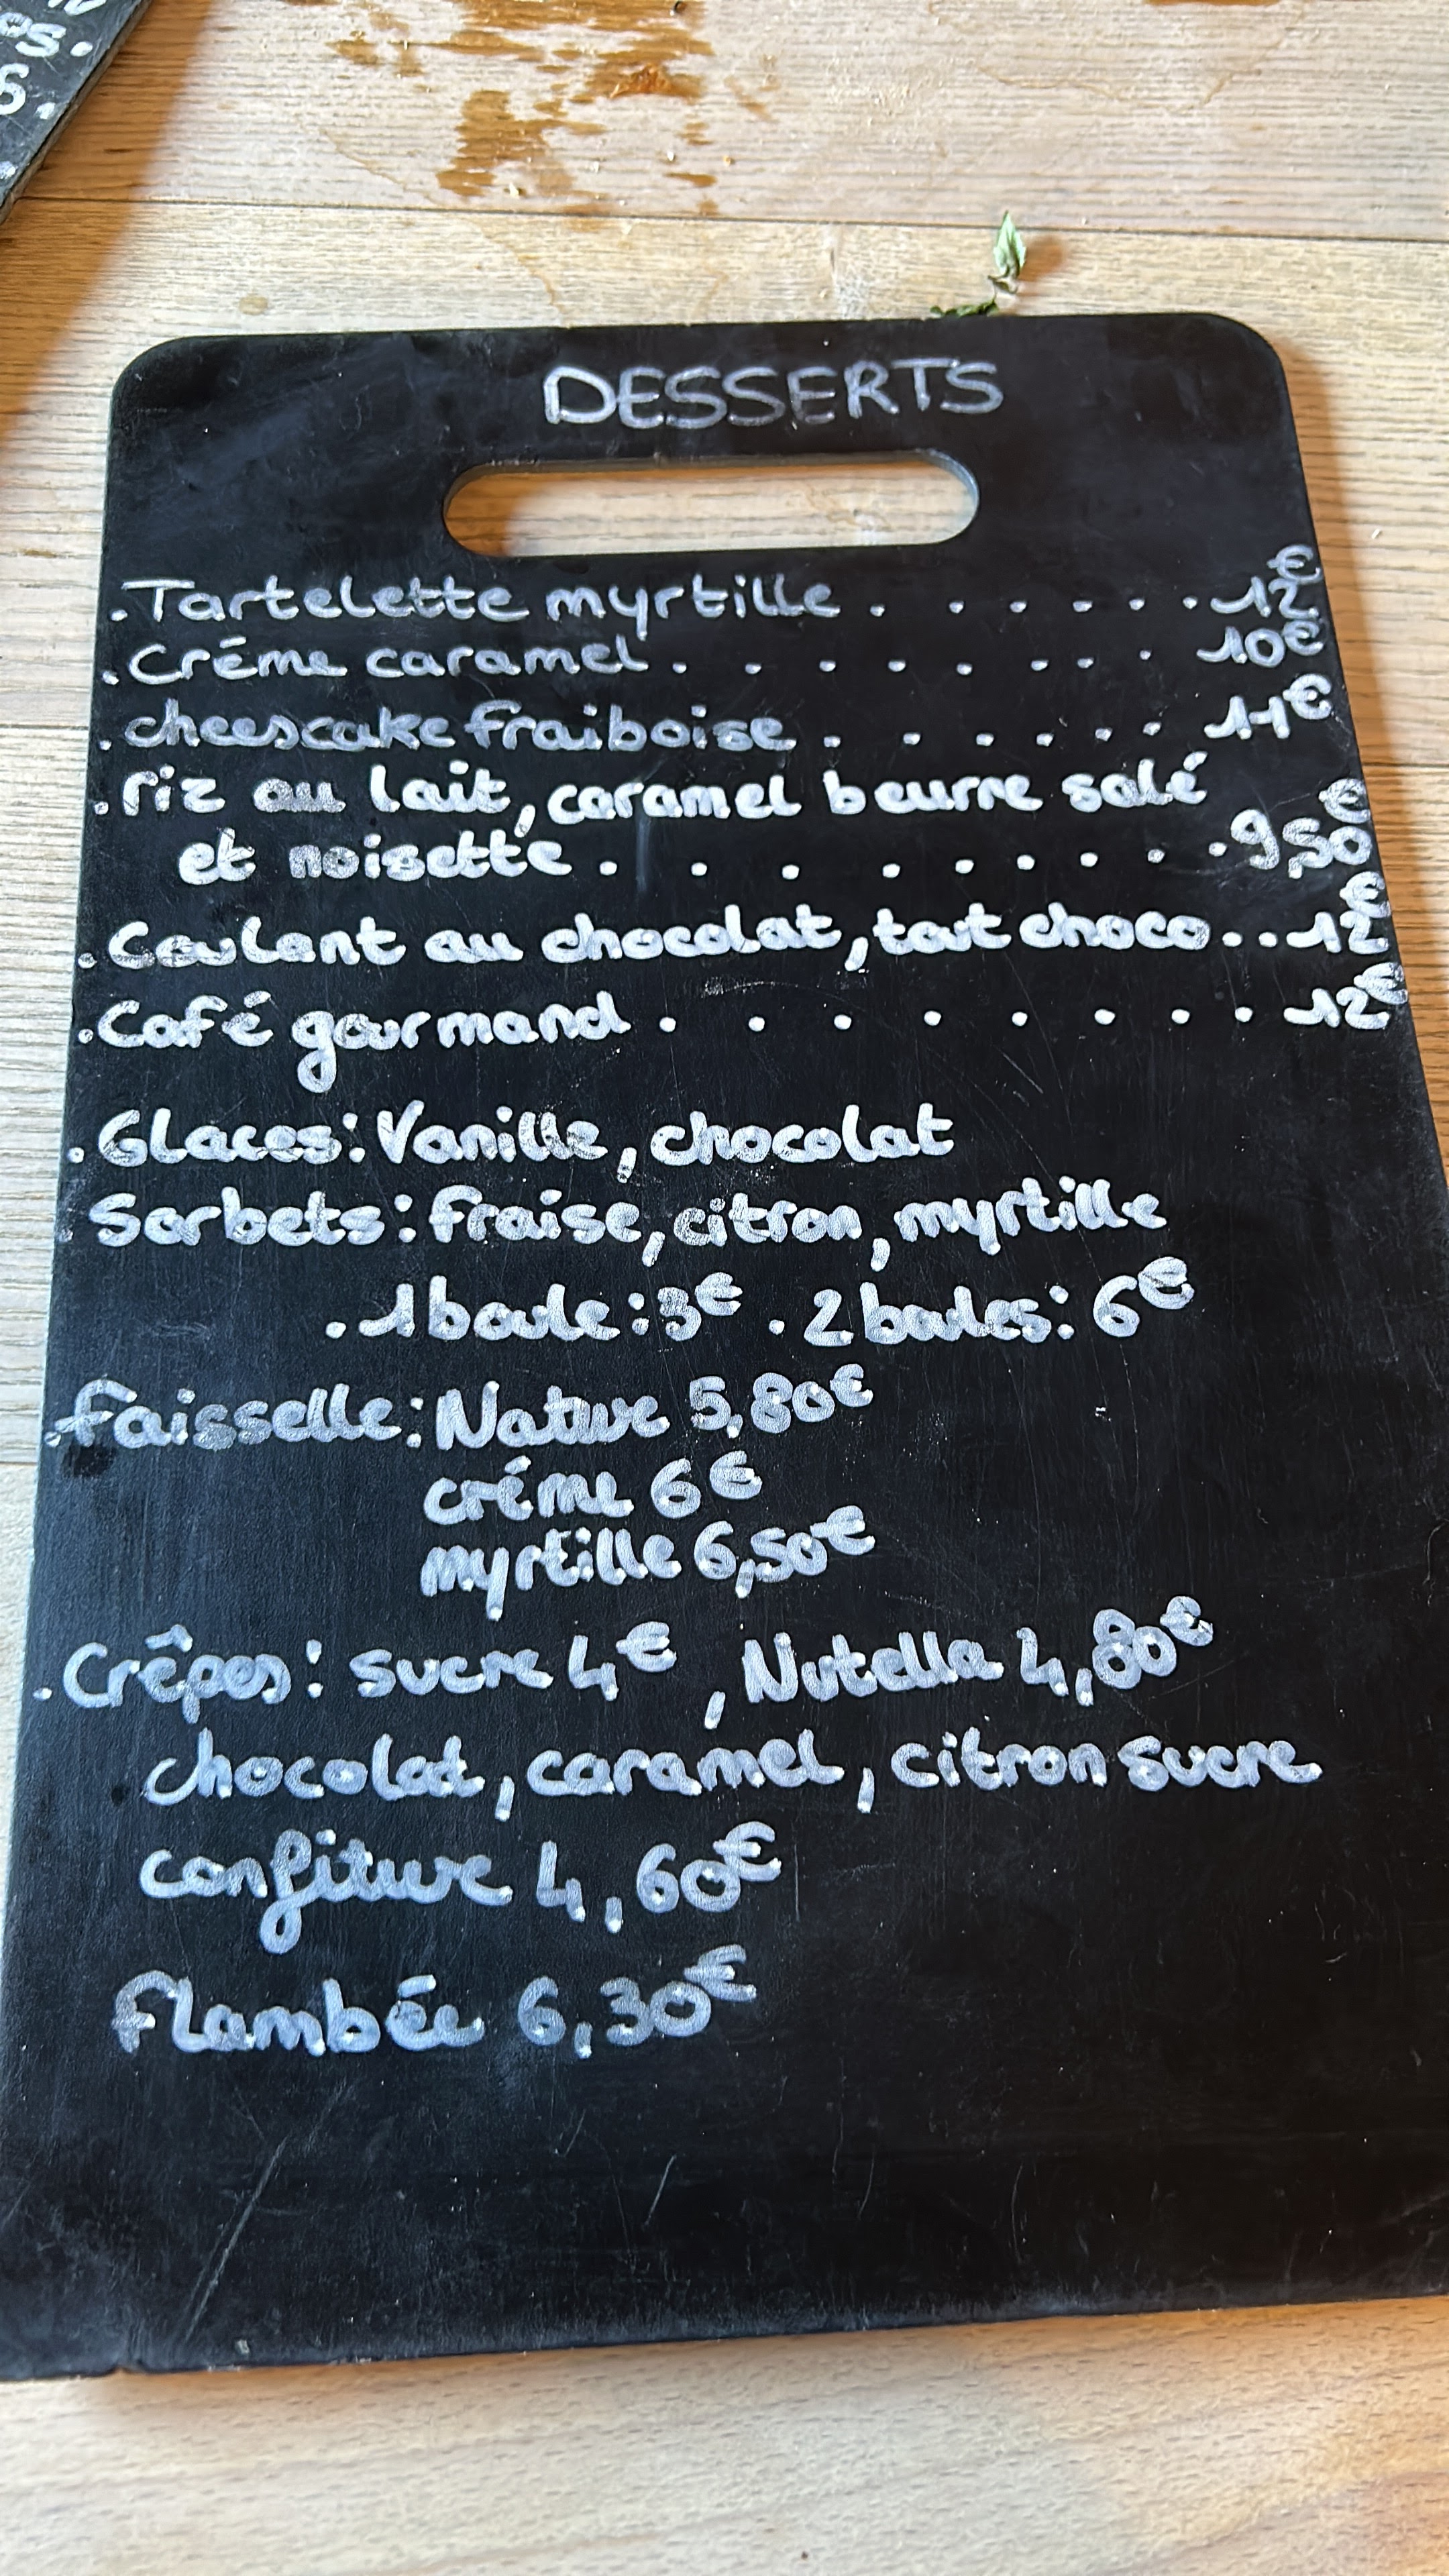 os.
6.
DESSERTS
.Tartelette myrtille . . . . . . 12€
.Créme caramel . . . . . . . . 10€
.cheescake fraiboise . . . . . . 11€
.riz au lait, caramel beurre salé
et noisette . . . . . . . . 9,50€
.Coulant au chocolat, tout choco . . . 12€
.Café gourmand . . . . . . . . 12€
.Glaces: Vanille, chocolat
Sorbets: fraise, citron, myrtille
.1 boule: 3€ . 2 boules: 6€
.faisselle: Nature 5,80€
créme 6€
myrtille 6,50€
.Crêpes: sucre 4€, Nutella 4,80€
chocolat, caramel, citron sucre
confiture 4,60€
flambée 6,30€